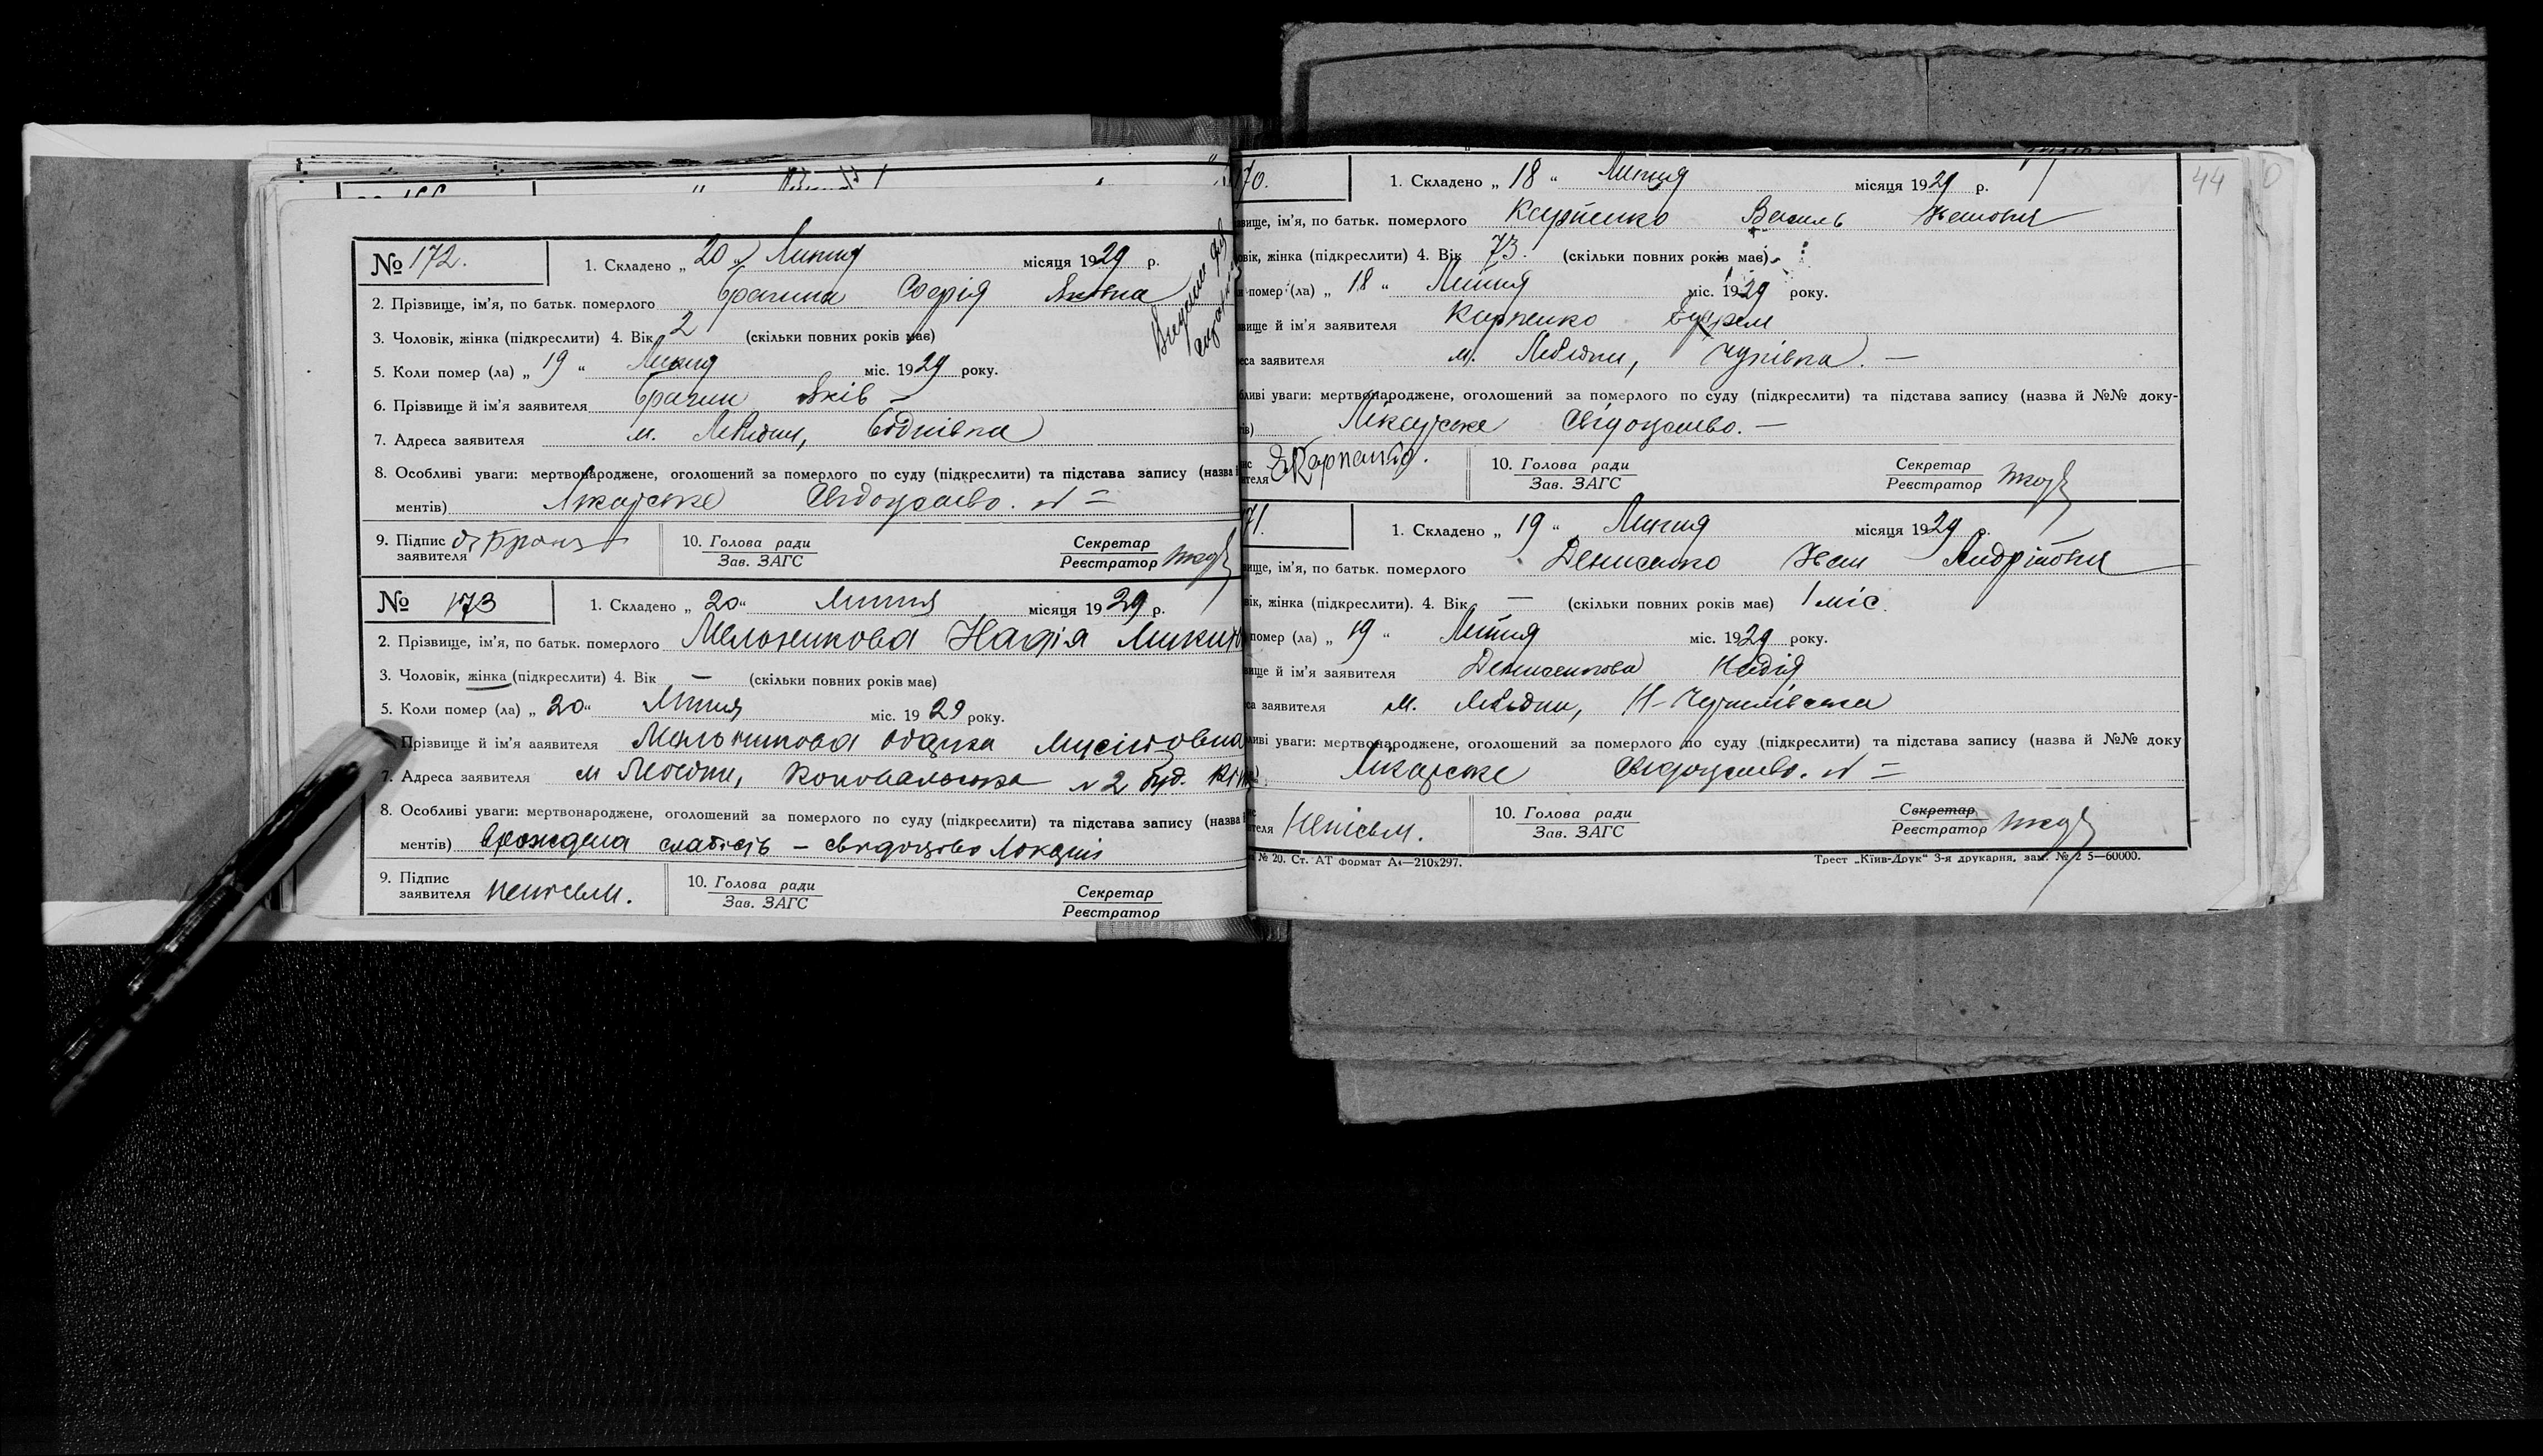 № 172.
1. Складено „ 20 „ Липня місяця 1929 р.
2. Прізвище, ім'я, по батьк. померлого Брагина Софія Яківна
3. Чоловік, жінка (підкреслити) 4. Вік 2 (скільки повних років має)
5. Коли помер (ла) „ 19 “ Липня міс. 1929 року.
6. Прізвище й ім'я заявителя Брагин Яків —
7. Адреса заявителя м. Лебедин,
8. Особливі уваги: мертвонароджене, оголошений за померлого по суду (підкреслити) та підстава запису (назва
ментів) Лікарське Свідоцтво. № =
9. Підпис заявителя
10. Голова ради Зав. ЗАГС
Секретар Реєстратор
№ 173
1. Складено „ 20 “ Липня місяця 1929 р.
2. Прізвище, ім'я, по батьк. померлого Мельникова Надія
3. Чоловік, жінка (підкреслити) 4. Вік — (скільки повних років має)
5. Коли помер (ла) „ 20 “ Липня міс. 1929 року.
Прізвище й ім'я заявителя Мельникова
7. Адреса заявителя м Лебедин, Коновальська № 2 буд.
8. Особливі уваги: мертвонароджене, оголошений за померлого по суду (підкреслити) та підстава запису (назва
ментів) врождена слабість — свидоцтво
9. Підпис заявителя неписьм.
10. Голова ради Зав. ЗАГС
Секретар Реєстратор
44
70.
1. Складено „ 18 “ Липня місяця 1929 р.
вище, ім'я, по батьк. померлого Карпенко Василь Іванович
вік, жінка (підкреслити) 4. Вік 73. (скільки повних років має)
помер (ла) „ 18 “ Липня міс. 1929 року.
вище й ім'я заявителя Карпенко
еса заявителя м. Лебедин,
бливі уваги: мертвонароджене, оголошений за померлого по суду (підкреслити) та підстава запису (назва й №№ доку-
ів) Лікарське Свідоцтво. —
10. Голова ради Зав. ЗАГС
Секретар Реєстратор
71.
1. Складено „ 19 “ Липня місяця 1929 р.
вище, ім'я, по батьк. померлого Денисенко Іван Андрійович
вік, жінка (підкреслити). 4. Вік — (скільки повних років має) 1 міс.
помер (ла) „ 19 “ Липня міс. 1929 року.
вище й ім'я заявителя Денисенкова Надія
са заявителя м. Лебедин,
ливі уваги: мертвонароджене, оголошений за померлого по суду (підкреслити) та підстава запису (назва й №№ доку
Лікарське Свідоцтво. № =
ителя Неписьм.
10. Голова ради Зав. ЗАГС
Секретар Реєстратор
№ 20. Ст. АТ формат А4—210х297.
Трест „Київ-Друк“ 3-я друкарня, зам. № 2 5—60000.